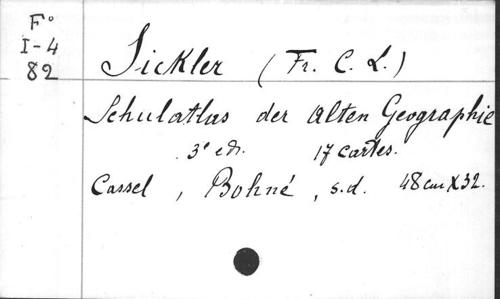 F°
I-4
82
Sickler (Fr. C. L.)
Schulatlas der alten Geographie
3e edn. 17 cartes.
Cassel, Bohné, s.d. 48 cm X 32.